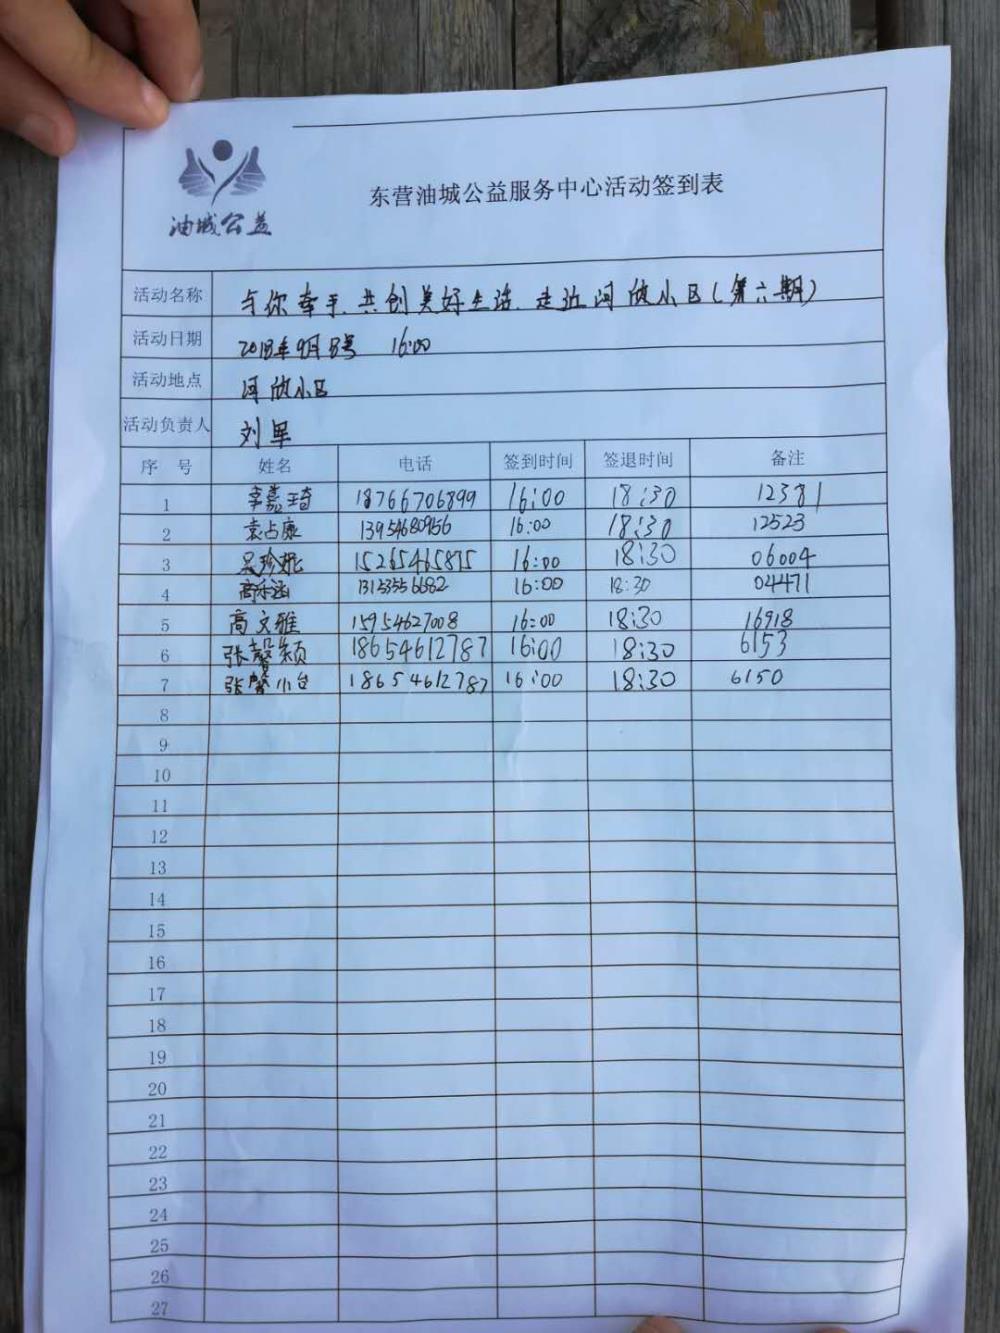 油城公益
东营油城公益服务中心活动签到表
活动名称 与你牵手、共创美好生活、走近河欣小区(第六期)
活动日期 2018年9月8号 16:00
活动地点 河欣小区
活动负责人 刘军
序 号 姓名 电话 签到时间 签退时间 备注
1 李嘉琦 18766706899 16:00 18:30 12381
2 袁占康 13954680956 16:00 18:30 12523
3 15265465815 16:00 18:30 06004
4 16:00 18:30 04471
5 高文雅 15954627008 16:00 18:30 16918
6 张馨颖 18654612787 16:00 18:30 6153
7 18654612787 16:00 18:30 6150
8
9
10
11
12
13
14
15
16
17
18
19
20
21
22
23
24
25
26
27